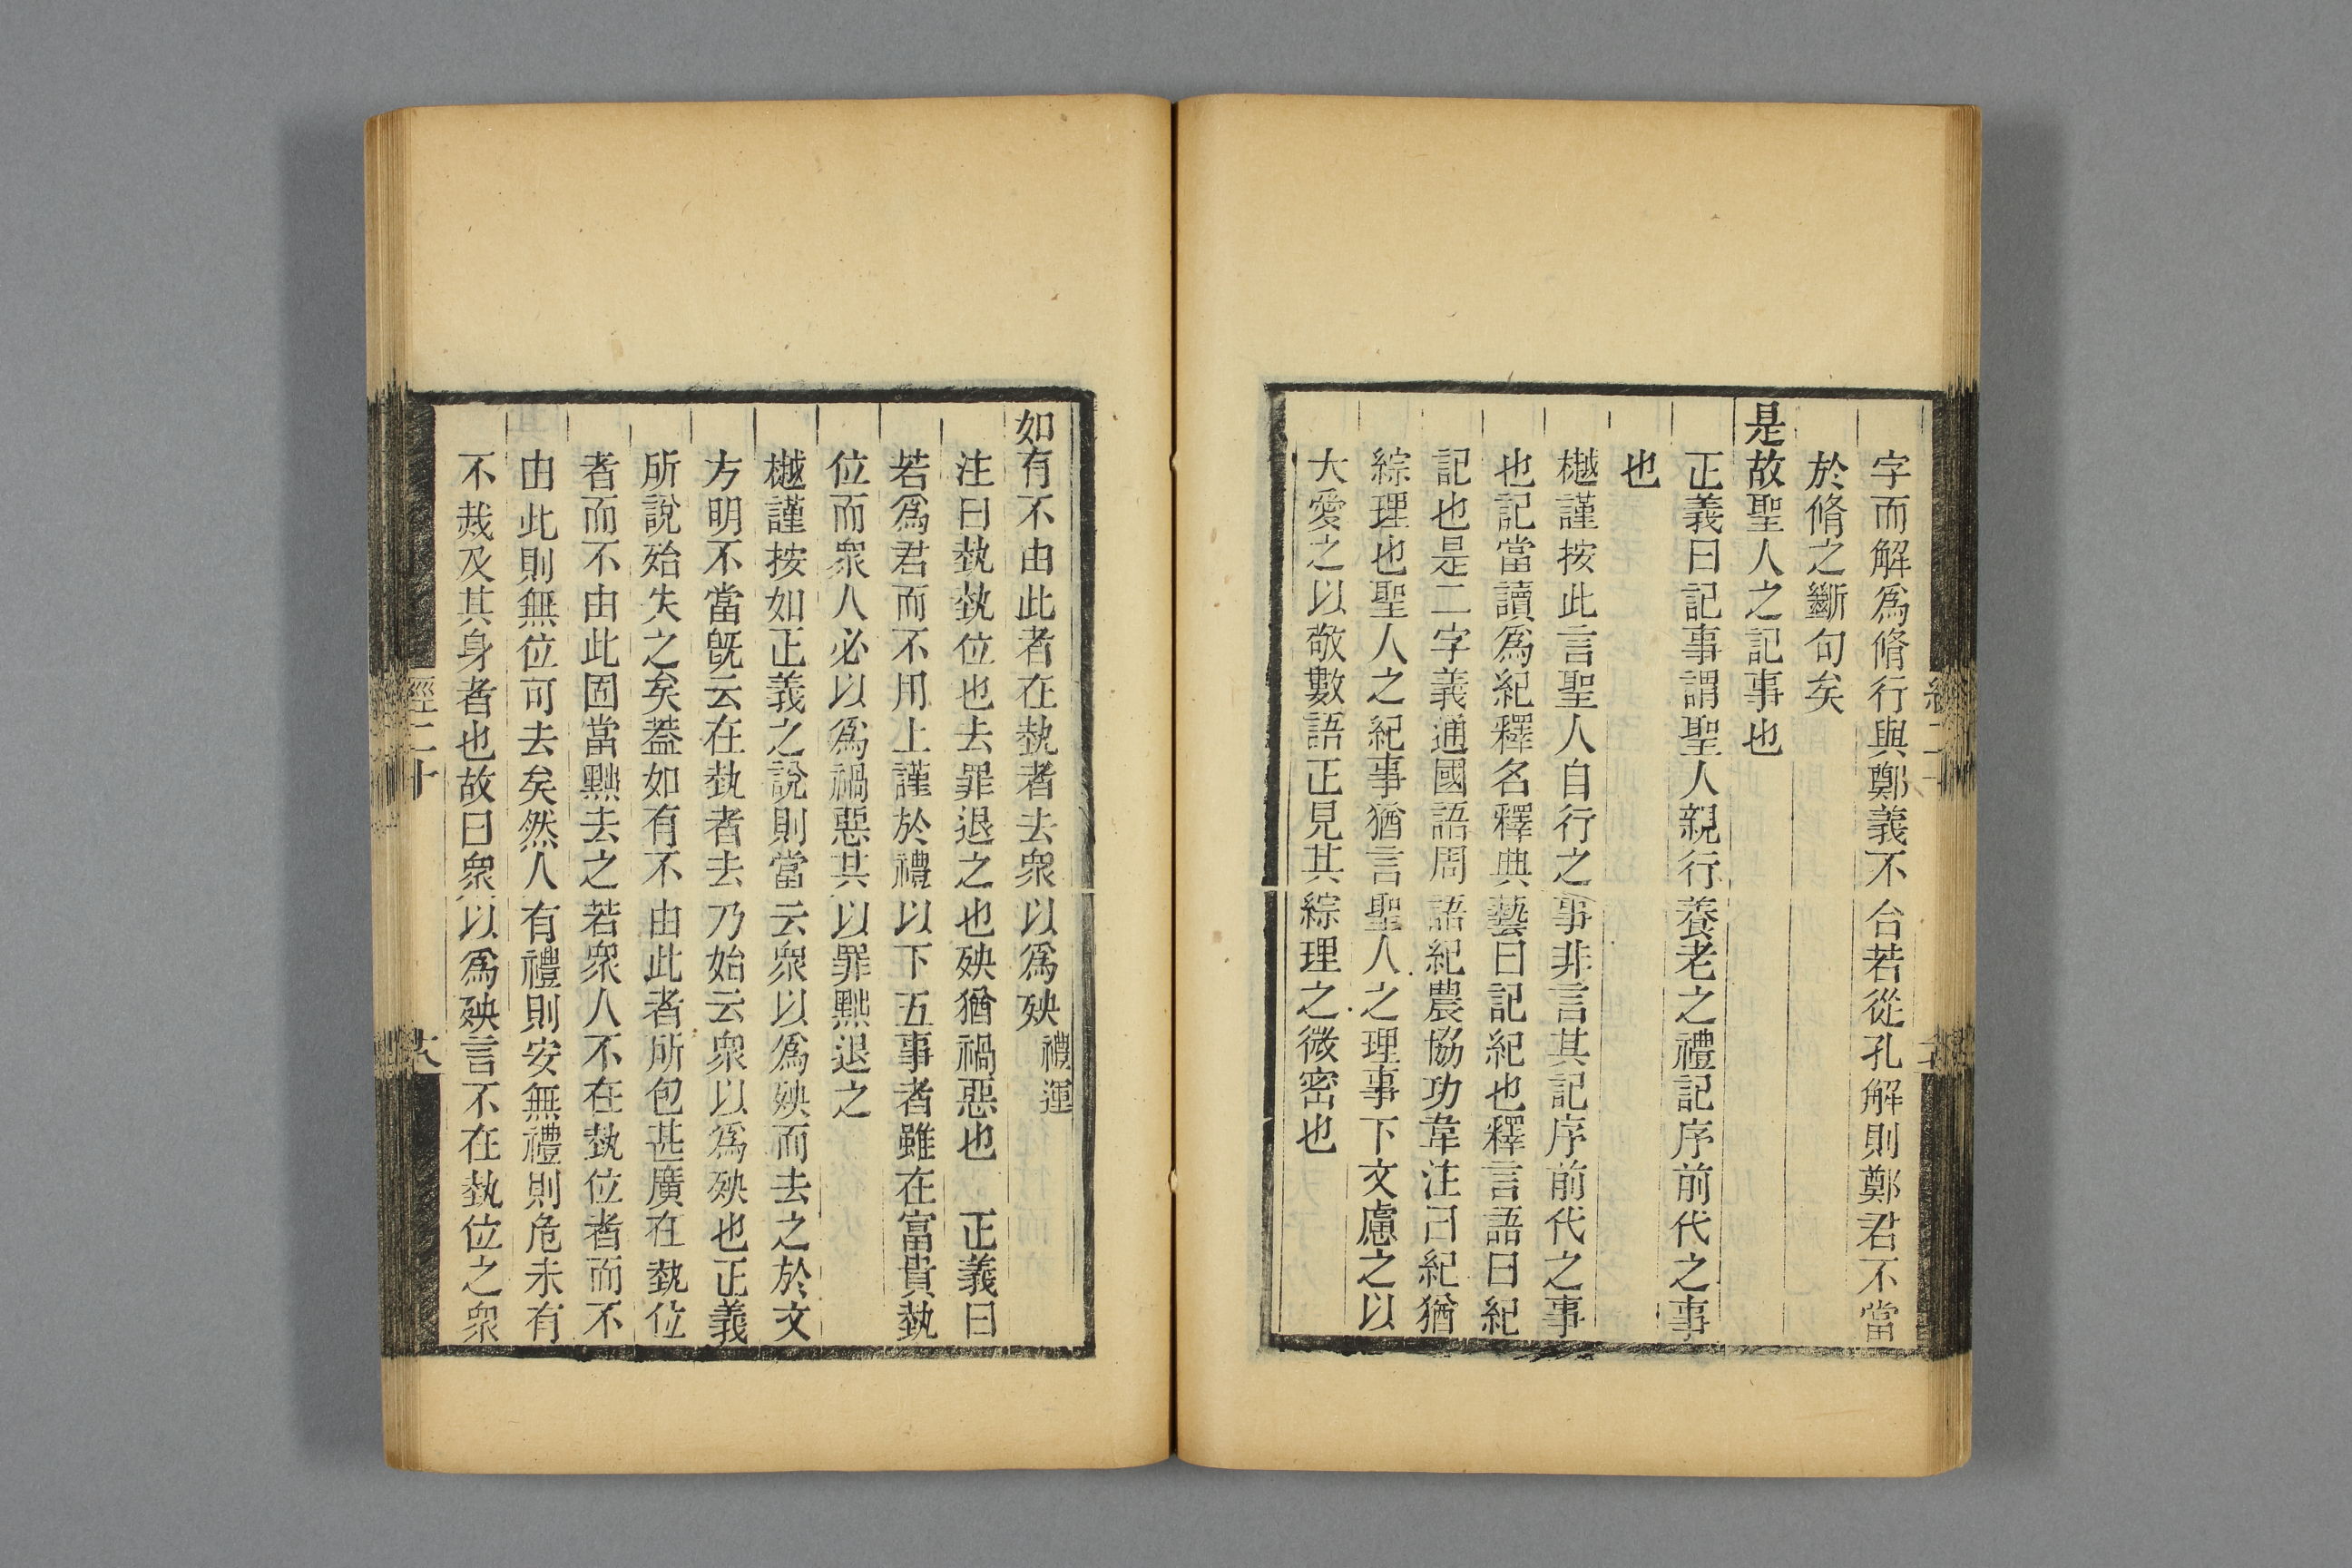 字而解爲脩行與鄭義不合若從孔解則鄭君不當
於脩之斷句矣
是故聖人之記事也
正義曰記事謂聖人親行養老之禮記序前代之事
也
樾謹按此言聖人自行之事非言其記序前代之事
也記當讀爲紀釋名釋典藝曰記紀也釋言語曰紀
記也是二字義通國語周語紀農協功韋注曰紀猶
綜理也聖人之紀事猶言聖人之理事下文慮之以
大愛之以敬數語正見其綜理之微密也
如有不由此者在埶者去衆以爲殃禮運
注曰埶埶位也去罪退之也殃猶禍惡也 正義曰
若爲君而不用上謹於禮以下五事者雖在富貴埶
位而衆人必以爲禍惡共以罪黜退之
樾謹按如正義之說則當云衆以爲殃而去之於文
方明不當旣云在埶者去乃始云衆以爲殃也正義
所說殆失之矣蓋如有不由此者所包甚廣在埶位
者而不由此固當黜去之若衆人不在埶位者而不
由此則無位可去矣然人有禮則安無禮則危未有
不烖及其身者也故曰衆以爲殃言不在埶位之衆
經二十